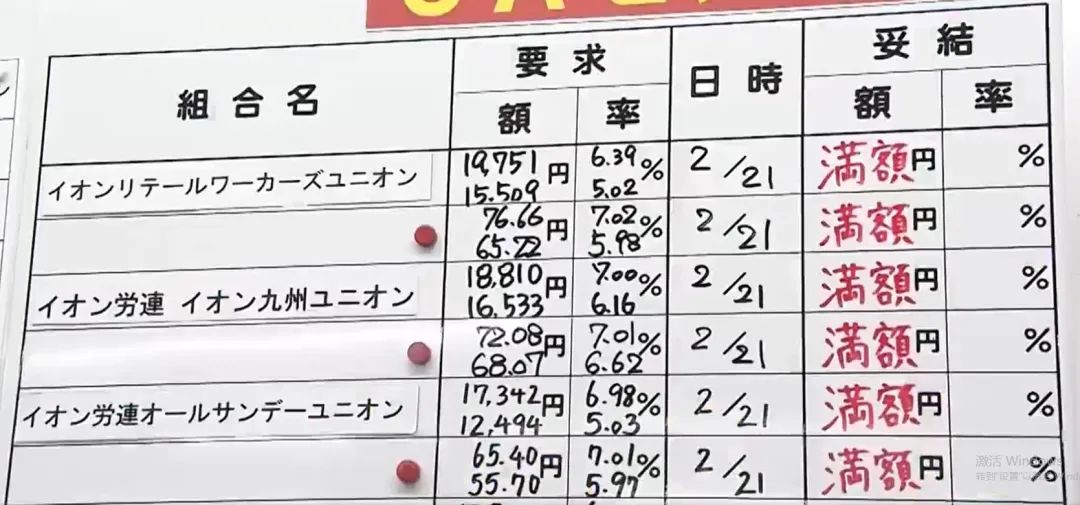 組合名 要求 日時 妥結
額 率 額 率
イオンリテールワーカーズユニオン 19,751 円 6.39 % 2/21 満額円 %
15.509 5.02
76.66 円 7.02 % 2/21 満額円 %
65.22 5.98
イオン労連 イオン九州ユニオン 18,810 円 7.00 % 2/21 満額円 %
16,533 6.16
72.08 円 7.01 % 2/21 満額円 %
68.07 6.62
イオン労連オールサンデーユニオン 17,342 円 6.98 % 2/21 満額円 %
12,494 5.03
65.40 円 7.01 % 2/21 満額円 %
55.70 5.97
激活 Windows